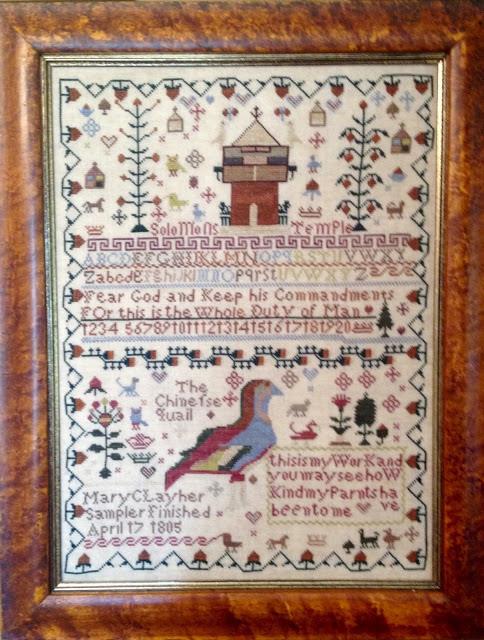 SoloMons Temple
ABCDEFGHIJKLMNOPQRSTUVWXY
Zabcdefghijklmnopqrstuvwxyz
Fear God and Keep his Commandments
FOr this is the Whole Duty of Man
1234 567891011121314151617181920
The
Chineise
Quail
thisismyWorKand
youmayseehoW
Kindmy Parntsha
ve
beentome
Mary CLayher
Sampler Finished
April 17 1805